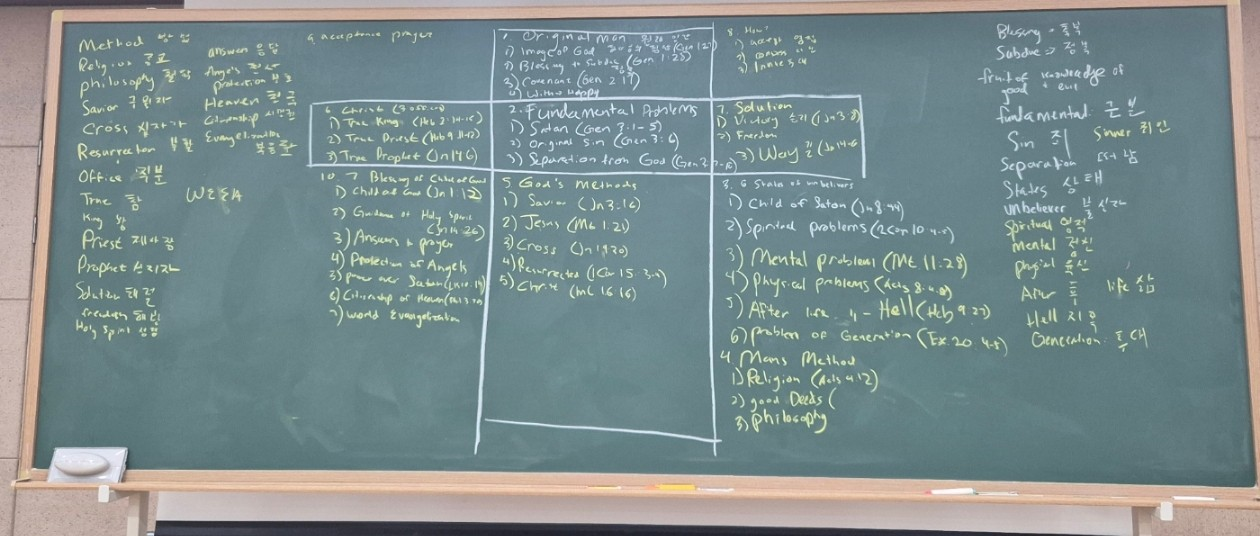 Method 방법
Religious 종교
philosophy 철학
Savior 구원자
Cross 십자가
Resurrection 부활
Office 직분
True 참
King 왕
Priest 제사장
Prophet 선지자
Solution 해결
freedom 해방
Holy Spirit 성령
answer 응답
Angels 천사
protection 보호
Heaven 천국
Citizenship 시민권
Evangelization
복음화
9. acceptance prayer
1. Original man
1) Image of God (Gen 1:27)
2) Blessing to Subdue (Gen 1:28)
3) Covenant (Gen 2:17)
4) With happy
8. How?
1) accept 영접
2) confess 시인
3)
6. Christ
1) True King (1Jn 3:8)
2) True Priest
3) True Prophet (Jn 14 6)
2. Fundamental Problems
1) Satan (Gen 3:1-5)
2) Original Sin (Gen 3:6)
3) Separation from God
7. Solution
1) Victory 승리 (1Jn 3 8)
2) Freedom
3) Way 길 (Jn 14-6
10. 7 Blessing of Child of God
1) Child of God (Jn 1:12)
2) Guidance of Holy Spirit
(Jn 14 26)
3) Answers to prayer
4) Protection of Angels
5) power over Satan
6) Citizenship of Heaven
7) World Evangelization
5. God's methods
1) Savior (Jn 3:16)
2) Jesus (Mt 1:21)
3) Cross (Jn 19 30)
4) Resurrected (1Cor 15:3-4)
5) Christ (Mt 16 16)
3. 6 State of unbelievers
1) Child of Satan (Jn 8:44)
2) Spiritual problems (2Cor 10:4-5)
3) Mental problems (Mt. 11:28)
4) Physical problems (Acts 8:4-8)
5) After life - Hell (Heb 9:27)
6) problem of Generation (Ex. 20:4-5)
4. Mans Method
1) Religion (Acts 4:12)
2) good Deeds (
3) philosophy
Blessing 축복
Subdue 정복
fruit of knowledge of
good + evil
fundamental: 근본
Sin 죄 Sinner 죄인
Separation 떠남
States 상태
Unbeliever 불신자
Spiritual 영적
Mental 정신
physical 육신
After 후 life 삶
Hell 지옥
Generation: 후대